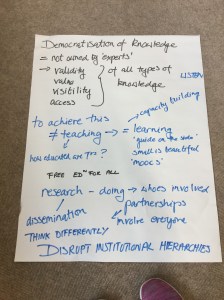 Democratisation of Knowledge
= not owned by 'experts'
→ validity
value
visibility
access
of all types of
knowledge
LISTEN
capacity building
to achieve this
≠ teaching → = learning
'guide on the side'
how educated are you?
small is beautiful
'moocs'
FREE EDn FOR ALL
research - doing → who's involved
partnerships
dissemination
involve everyone
THINK DIFFERENTLY
DISRUPT INSTITUTIONAL HIERARCHIES